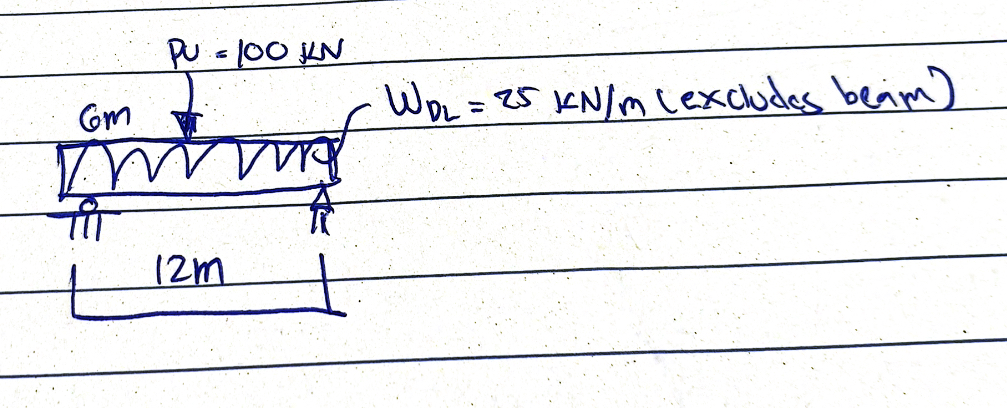 PU = 100 KN
6m
WDL = 25 KN/m (excludes beam)
12m